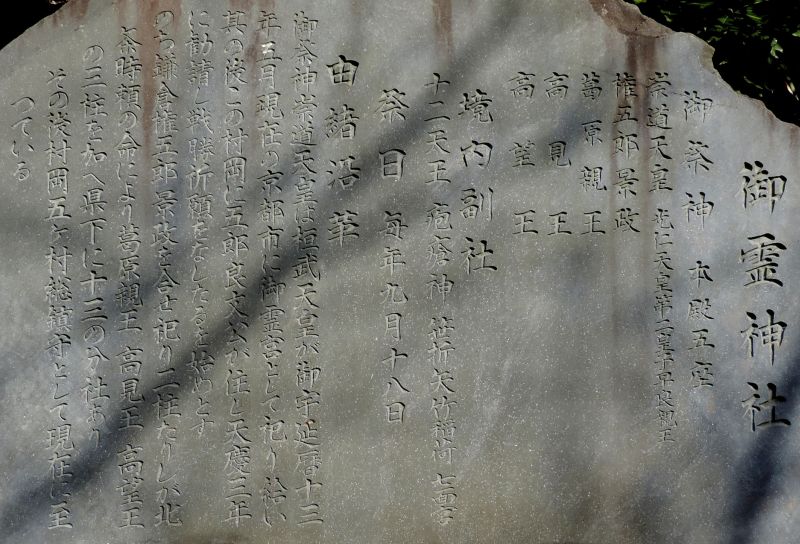 御霊神社
御祭神　本殿五座
崇道天皇　光仁天皇第二皇子早良親王
権五郎景政
葛原親王
高見王
高望王
境内副社
十二天王　疱瘡神　笹折矢竹稲荷
祭日　毎年九月十八日
由緒沿革
御祭神崇道天皇は桓武天皇が御宇延暦十三
年五月現在の京都市に御霊宮として祀り給い
其の後この村岡に五郎良文公が住し天慶三年
に勧請し戦勝祈願をなしたるを始めとす
のち鎌倉権五郎景政を合せ祀り二柱たりしが北
条時頼の命により葛原親王　高見王　高望王
の三柱を加へ県下に十三の分社あり
その後村岡五ヶ村総鎮守として現在に至
つている